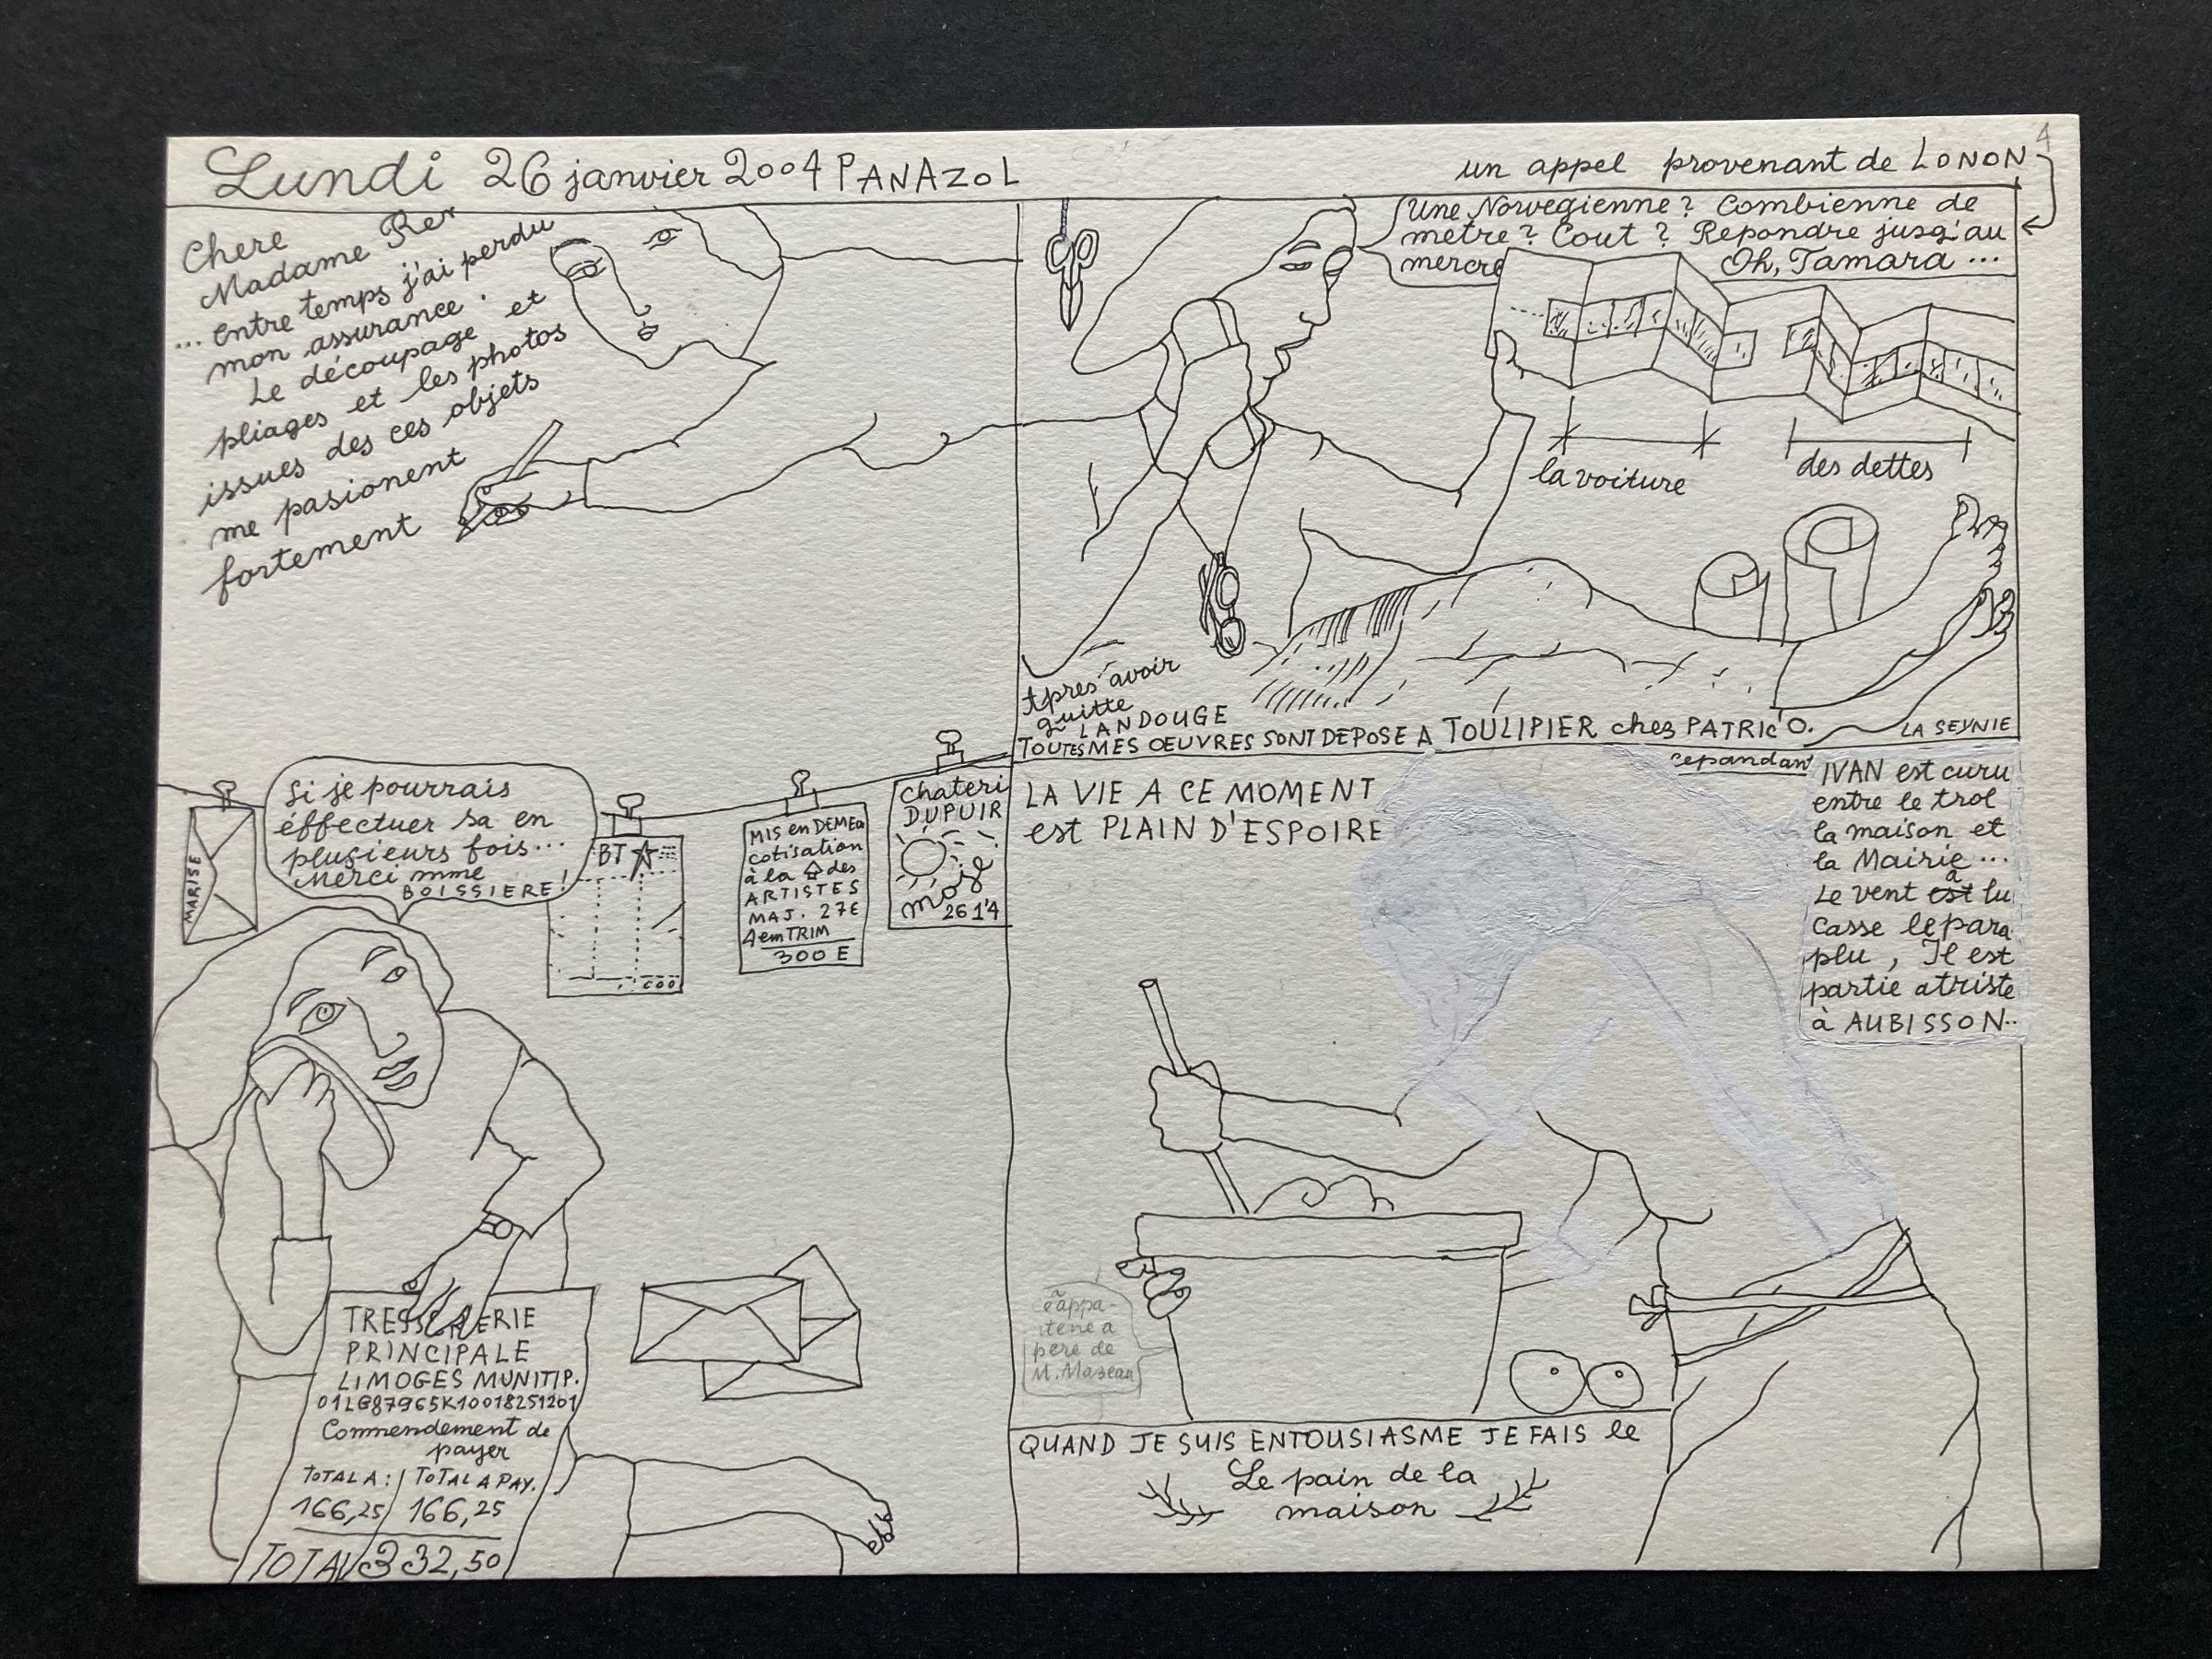 Lundi 26 janvier 2004 PANAZOL
un appel provenant de LONON
4
Chere
Madame Rer
... entre temps j'ai perdu
mon assurance.
Le découpage et
pliages et les photos
issues des ces objets
me pasionent
fortement
Une Norvegienne? Combienne de
metre? Cout? Repondre jusq'au
mercre
Oh, Tamara ...
la voiture
des dettes
Apres avoir
quitte
LANDOUGE
TOUTES MES OEUVRES SONT DEPOSE A TOULIPIER chez PATRIC'O.
LA SEYNIE
Si je pourrais
éffectuer sa en
plusieurs fois...
Merci mme
BOISSIERE!
MARISE
BT
MIS en DEME
cotisation
à la des
ARTISTES
MAJ. 27E
4em TRIM
300 E
chateri
DUPUIR
moise
26 1'4
TRESORERIE
PRINCIPALE
LIMOGES MUNITIP.
01LG87965K10018251201
Commendement de
payer
TOTAL A: / TOTAL A PAY.
166,25/ 166,25
TOTAL 332,50
LA VIE A CE MOMENT
est PLAIN D'ESPOIRE
cepandant
IVAN est curu
entre le trol
la maison et
la Mairie...
Le vent à lu
casse le para
plu, Il est
partie atriste
à AUBISSON..
appa-
tene a
pere de
M. Mazeau
QUAND JE SUIS ENTOUSIASME JE FAIS le
Le pain de la
maison